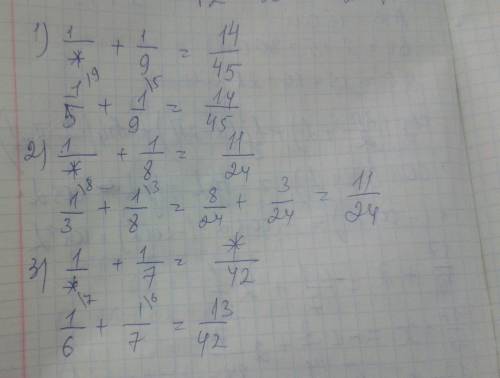 1) 1/* + 1/9 = 14/45
1\9/5 + 1\5/9 = 14/45
2) 1/* + 1/8 = 11/24
1\8/3 + 1\3/8 = 8/24 + 3/24 = 11/24
3) 1/* + 1/7 = */42
1\7/6 + 1\6/7 = 13/42